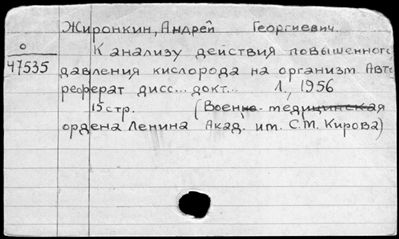 Жиронкин, Андрей Георгиевич.
О
47535
К анализу действия повышенного
давления кислорода на организм Авто
реферат дисс... докт... Л., 1956
15 стр. (Военно медицинская
ордена Ленина Акад. им. С.М. Кирова)